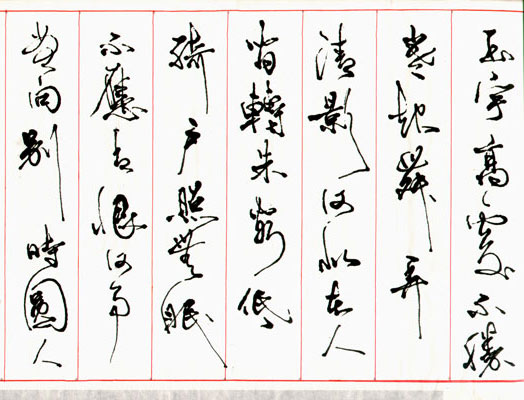 玉宇高處不勝
寒起舞弄
清影何似在人
間轉朱閣低
綺戶照無眠
不應有恨何事
長向別時圓人